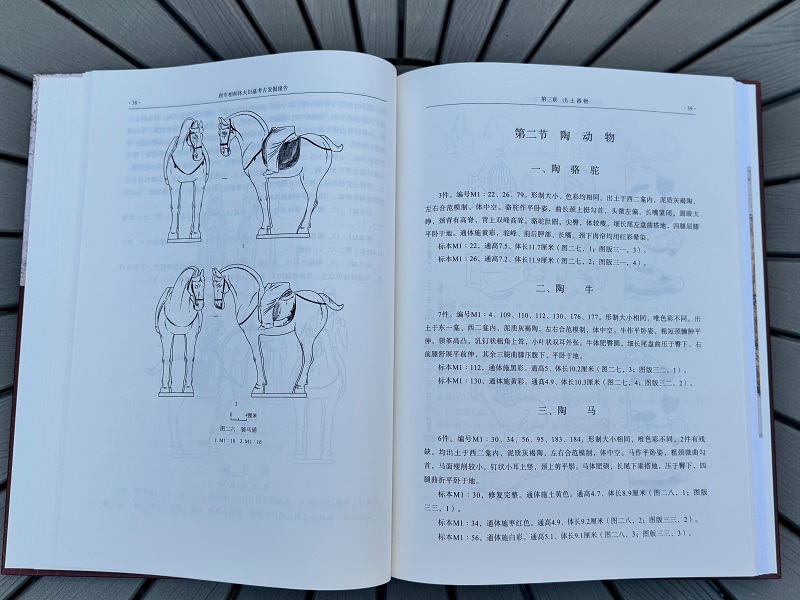 · 38 ·
唐宰相韩休夫妇墓考古发掘报告
1
2
0 4厘米
图二六 骑马俑
1. M1：18 2. M1：16
第三章 出土器物
· 39 ·
第二节 陶动物
一、陶骆驼
3件。编号M1：22、26、79。形制大小、色彩均相同。出土于西二龛内，泥质灰褐陶，
左右合范模制。体中空。骆驼作平卧姿，曲长颈上挺勾首，头微左偏，长嘴紧闭。圆眼大
睁，颈背有高脊，背上双峰高耸。骆驼肚圆，尖臀，体较瘦，细长尾左盘曲搭地，四腿屈膝
平卧于地。通体施黄彩，驼峰、前后胛部、长嘴、颈下肉帘均用红彩晕染。
标本M1：22，通高7.5、体长11.7厘米（图二七，1；图版三一，3）。
标本M1：26，通高7.2、体长11.9厘米（图二七，2；图版三一，4）。
二、陶 牛
7件。编号M1：4、109、110、112、130、176、177。形制大小相同，唯色彩不同。出
土于东一龛、西二龛内，泥质灰褐陶，左右合范模制，体中空。牛作平卧姿，粗短颈臃肿平
伸，领革高凸，乳钉状粗角上耸，小叶状双耳外张。牛体肥臀圆，细长尾盘曲压于臀下。右
前腿舒展平前伸，其余三腿曲膝压腹下，平卧于地。
标本M1：112，通体施黑彩。通高5、体长10.2厘米（图二七，3；图版三二，1）。
标本M1：130，通体施黄彩。通高4.9、体长10.3厘米（图二七，4；图版三二，2）。
三、陶 马
6件。编号M1：30、34、56、95、183、184，形制大小相同，唯色彩不同。2件有残
缺。均出土于西二龛内，泥质灰褐陶，左右合范模制，体中空。马作平卧姿，粗颈微曲勾
首，马面瘦削较小，钉状小耳上竖，颈上剪平鬃。马体肥硕，长尾下垂搭地，压于臀下，四
腿曲折平卧于地。
标本M1：30，修复完整。通体施土黄色。通高4.7、体长8.9厘米（图二八，1；图版
三三，1）。
标本M1：34，通体施枣红色。通高4.9、体长9.2厘米（图二八，2；图版三三，2）。
标本M1：56，通体施白彩。通高5.1、体长9.1厘米（图二八，3；图版三三，3）。